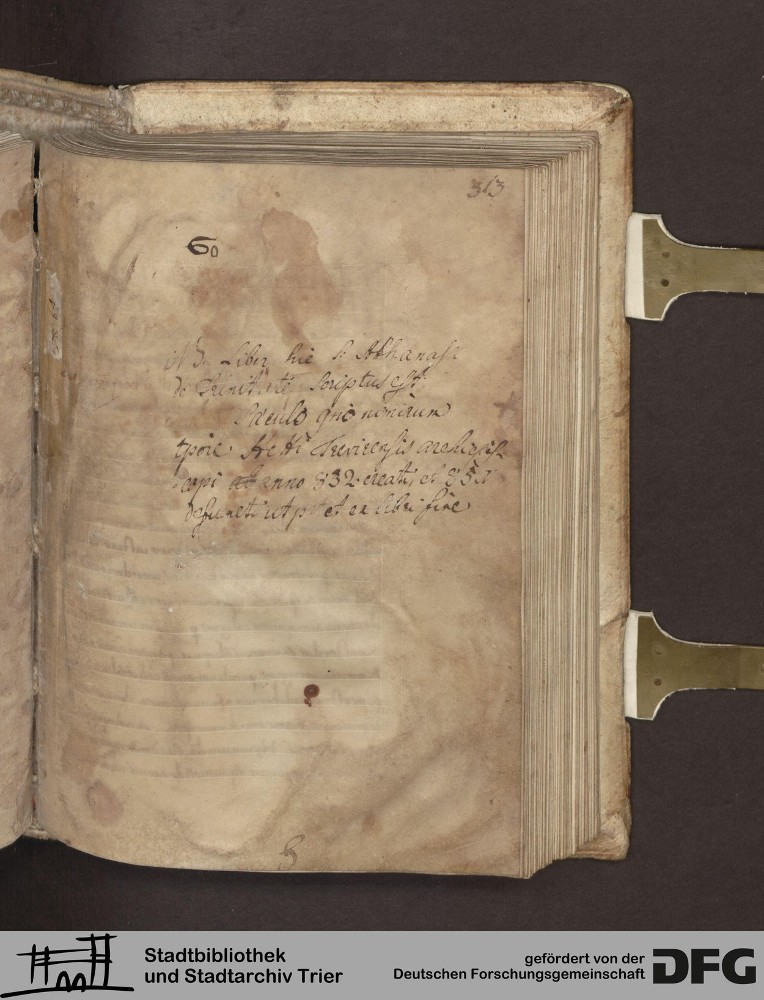 313
60
NB. Liber hic S. Athanasii
de Trinitate scriptus est
Saeculo nono
tpore Hetti Trevirensis archiepis
copi anno 832 creati, et 851
defuncti ut patet ex libri fine
Stadtbibliothek
und Stadtarchiv Trier
gefördert von der
Deutschen Forschungsgemeinschaft
DFG